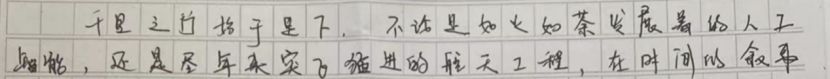 千里之行始于足下,不论是如火如荼发展着的人工
智能,还是尽年来突飞猛进的航天工程,在时间的叙事